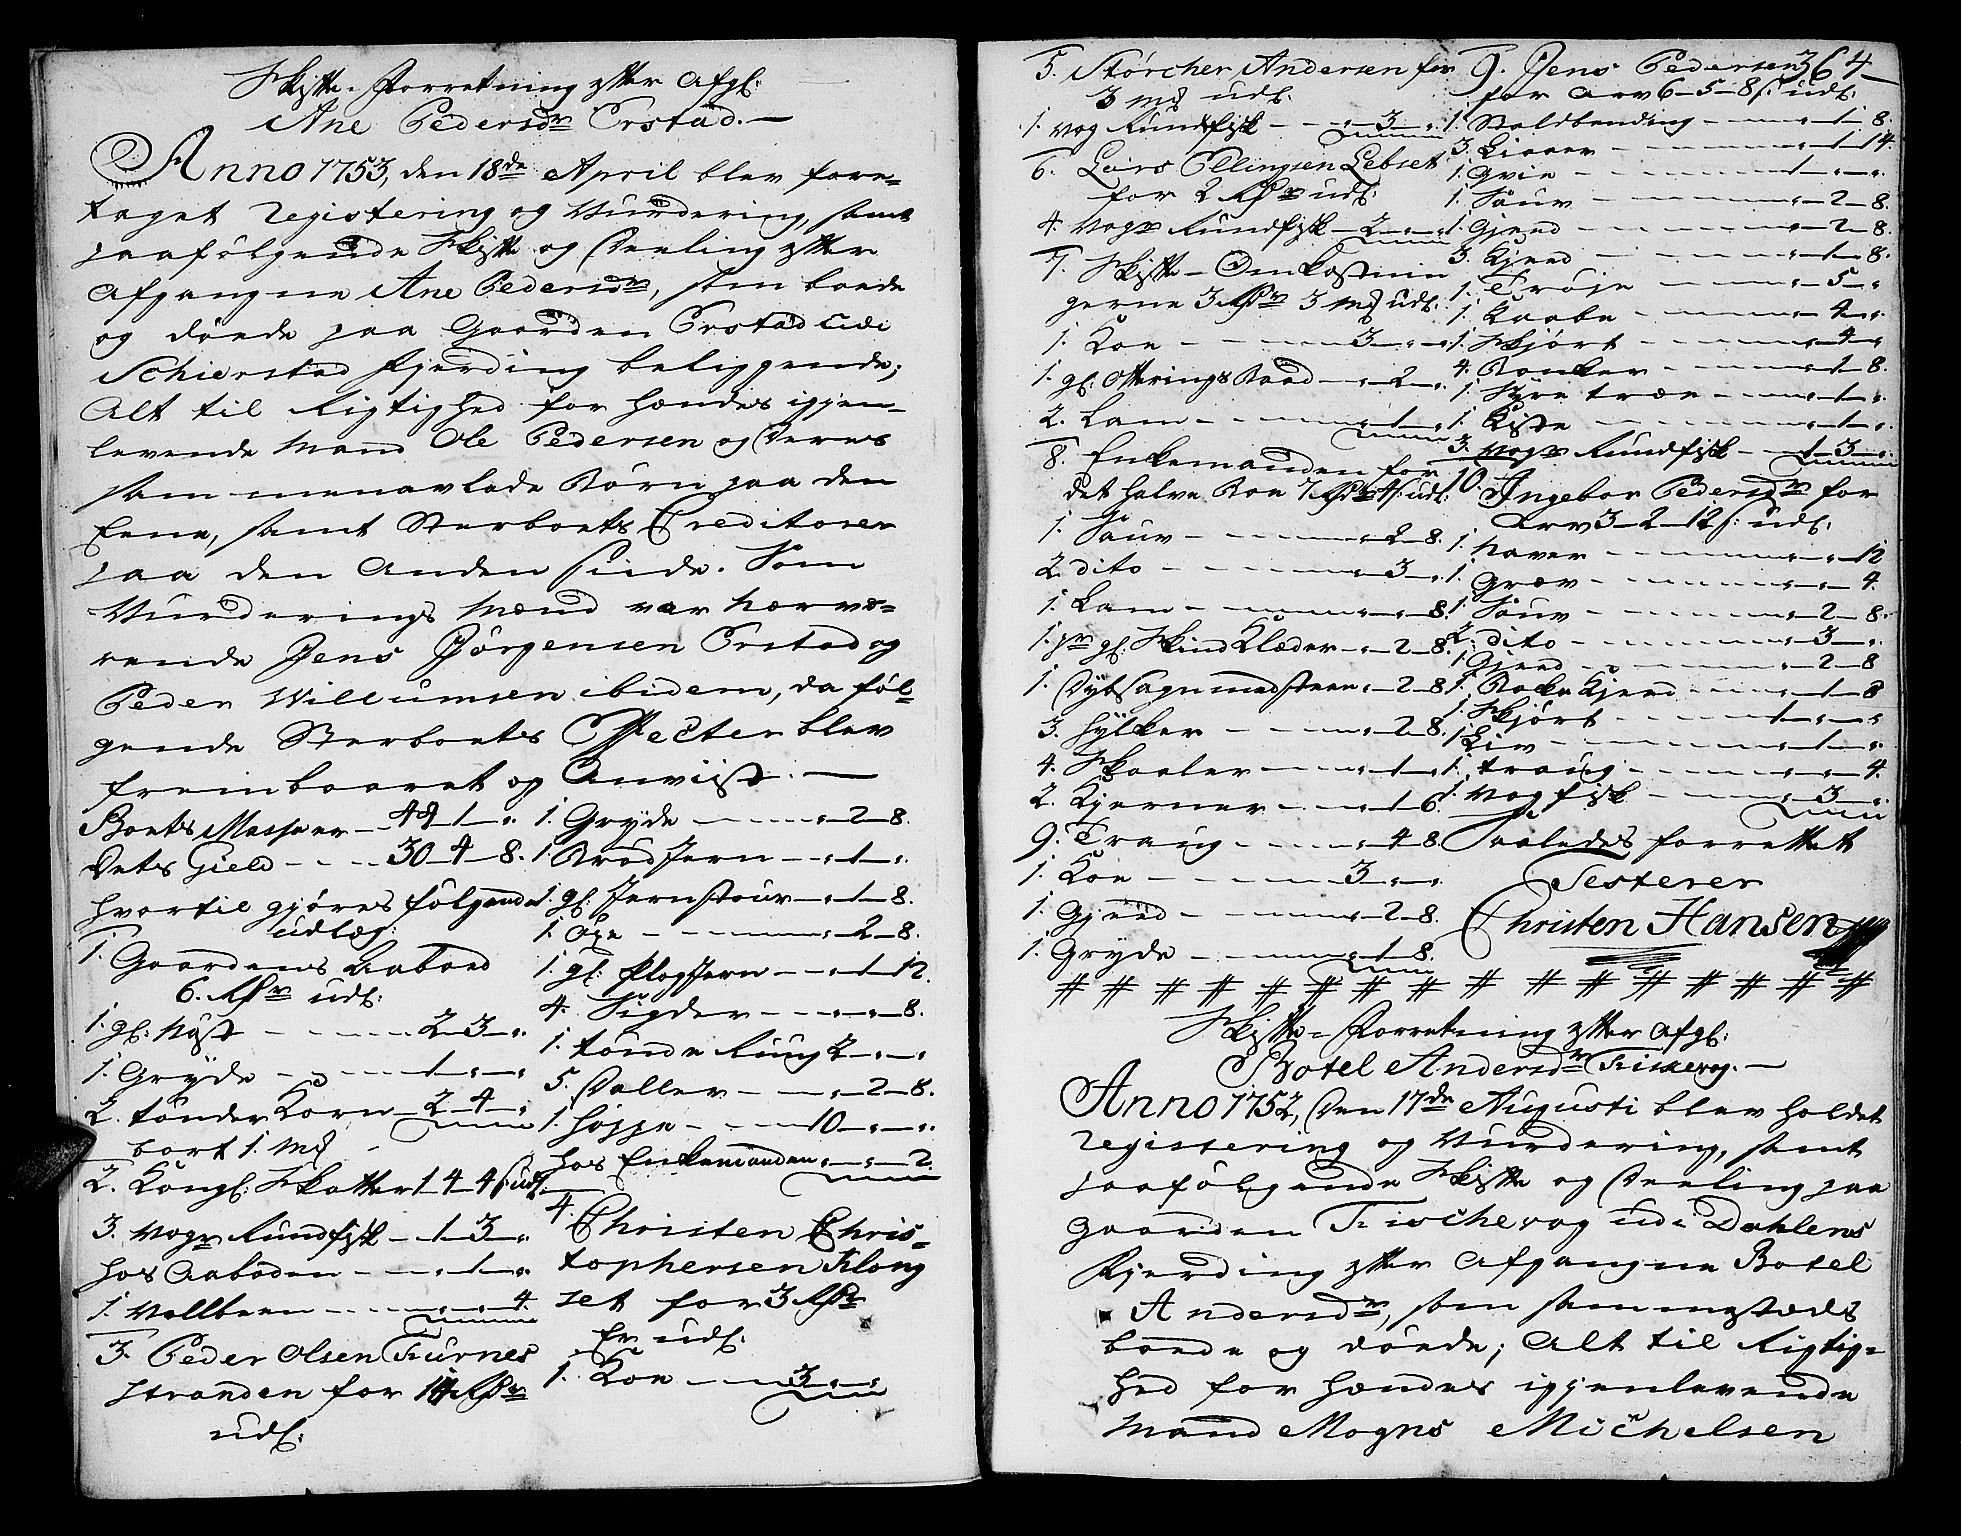 Skifte-Forretning efter Afgl:
Ane Pedersdr Erstad.
Anno 1753, den 18de April blev fore-
taget Registering og Vurdering, samt
paafølgende Skifte og Deeling efter
Afgangne Ane Pedersdr, som boede
og døede paa Gaarden Erstad udi
Schierstad Fjerding beliggende;
Alt til Rigtighed for hendes igjen-
levende Mand Ole Pedersen og Deres
sammenavlede Børn paa den
Eene, samt Sterboets Creditorer
paa den Anden Side. Som
Vurderings Mænd var nærvæ-
rende Jens Jørgensen Erstad og
Peder Willumsen ibidem, da føl-
gende Sterboets Effecter blev
frembaaret og Anviist.
Boets Masse er - 44 - 1 - "
Dets Gield - 30 - 4 - 8.
hvortil gjøres følgende
udlæg:
1. Gaardens Aabood
6. Rdr udl:
1. gl: Nøst - 2 - 3 - "
1. Gryde - 1 - " - "
2. tønder Korn - 2 - 4 - "
bort 1. mk
2. Kongl: Skatter 1-4-4 s: udl:
3. Voger Rundfisk - 1 - 3 - "
hos Aaboden - " - 1 - "
1. Vallbeen - " - " - 4.
3. Peder Olsen Furnes
stranden for 14 Rdr
udl:
1. Gryde - " - 2 - 8.
1. Brød Jern - " - 1 - "
1. gl: Jernstour - " - 1 - 8.
1. Øxe - " - 2 - 8.
1. gl: Plog Jern - " - 1 - 12.
4. Sigder - " - " - 8.
1. tønde Rung 2 - " - "
5. Daller - " - 2 - 8.
1. Hoppe - 10 - " - "
hos Enkemanden " - " - 2.
4. Christen Chris-
tophersen Klong
set for 3 Rdr
Er udl:
1. Koe - 3 - " - "
5. Størcher Andersen for
3 mk udl:
1. vog Rundfisk - " - 3 - "
6. Lars Ellingsen Lebset
for 2 Rdr udl:
4. Voger Rundfisk - 2 - " - "
7. Skifte-Omkostnin
gerne 3 Rdr 3 mk udl:
1. Koe - 3 - " - "
1. gl: Ottrings Baad - " - 2 - "
2. Lam - " - 1 - "
8. Enkemanden for
det halve Boe 7 Rdr 4 s: udl:
1. Sauv - " - 2 - 8.
2. dito - " - 3 - "
1. Lam - " - " - 8.
1. pr gl: Skind Klæder - " - 2 - 8.
1. Dybsagn med steen " - 2 - 8
3. Hylker - " - 2 - 8.
4. Skaaler - " - 1 - "
2. Kjerner - " - 1 - 6.
9. Traug - " - 4 - 8
1. Koe - 3 - " - "
1. Gjeed - " - 2 - 8.
1. Gryde - " - 1 - 8.
364
9. Jens Pedersen
for Arv 6-5-8 s: udl:
1. Staldbonding - " - 1 - 8.
3. Liaaer - " - 1 - 14.
1. Qvie - 1 - " - "
1. Sauv - " - 2 - 8.
1. Gjeed - " - 2 - 8.
3. Kjeed - " - 1 - 8.
1. Trøje - " - 5 - "
1. Kaabe - " - 4 - "
1. Skjørt - " - 4 - "
4. Bonker - " - 1 - 8.
1. Syretræe - " - 1 - "
1. Kiste - " - 1 - "
3. Voger Rundfisk - 1 - 3 - "
10. Ingebor Pedersdr for
Arv 3-2-12 s: udl:
1. Naver - " - " - 12
1. Græv - " - " - 4.
1. Sauv - " - 2 - 8.
2. dito - " - 3 - "
1. Gjeed - " - 2 - 8
1. Bocke Kjeed - " - 1 - 8
1. Skjørt - 1 - " - "
1. Liv - " - 1 - "
1. traug - " - " - 4.
1. Vog fisk - " - 3 - "
Saaledes forrettet
Testerer
Christen Hansen
# # # # # # # # # # # # # # # #
Skifte-Forretning efter Afgl:
Botel Andersdr Fiskevog.
Anno 1752, Den 17de Augusti blev holdet
Registering og Vurdering, samt
paafølgende Skifte og Deeling paa
gaarden Fischevog udi Dahlens
Fjerding efter Afgangne Botel
Andersdr, som sammestæds
boede og døede; Alt til Rigtig-
hed for hendes igjenlevende
Mand Mogns Michelsen